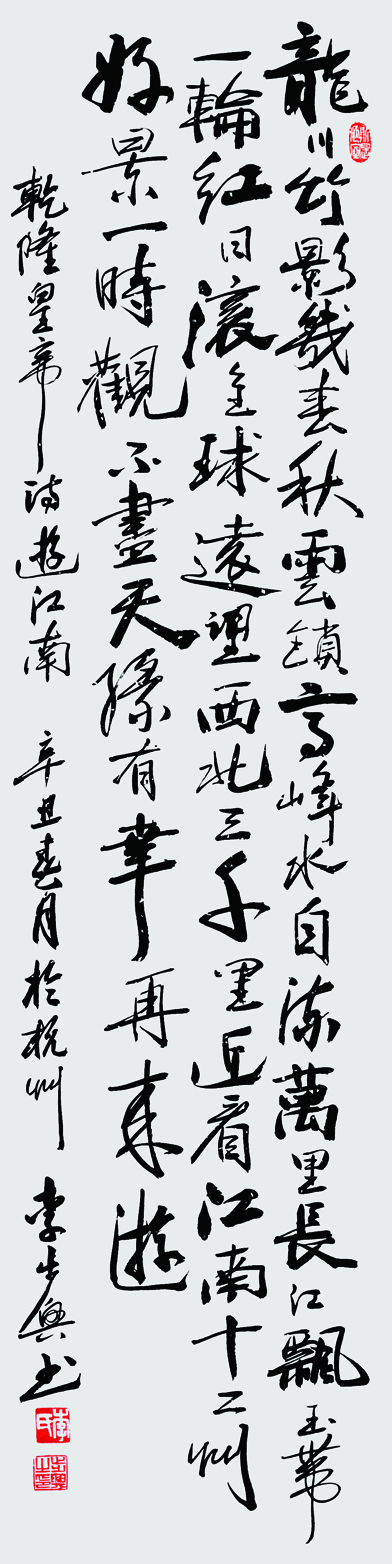 龍川竹影幾春秋雲鎖高峰水自流萬里長江飄玉帶
一輪紅日滾金球遠望西北三千里近看江南十二州
好景一時觀不盡天緣有幸再來游
乾隆皇帝詩遊江南 辛丑春月於杭州 李興書
李氏